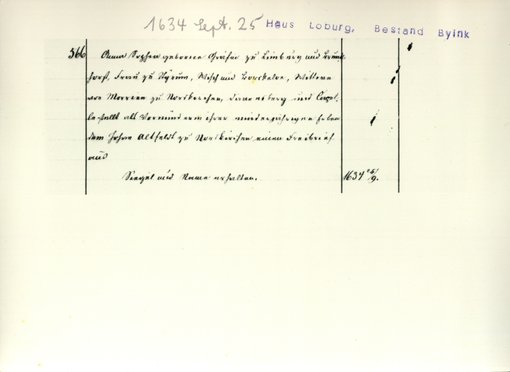 1634 Sept. 25 Haus Loburg, Bestand Byink
366 Anna Sophia geborene Gräfin zu Limburg und Brunk-
horst, Frau zu Styrum, Wisch und Borkeloe, Wittwe
von Morrien zu Nordkirchen, Davensberg und Cappel,
bestellt als Vormünderin ihrer minderjährigen
dem Johan zu Nordkirchen einen Freibrief
aus
Siegel und Name erhalten. 1634 25/9.